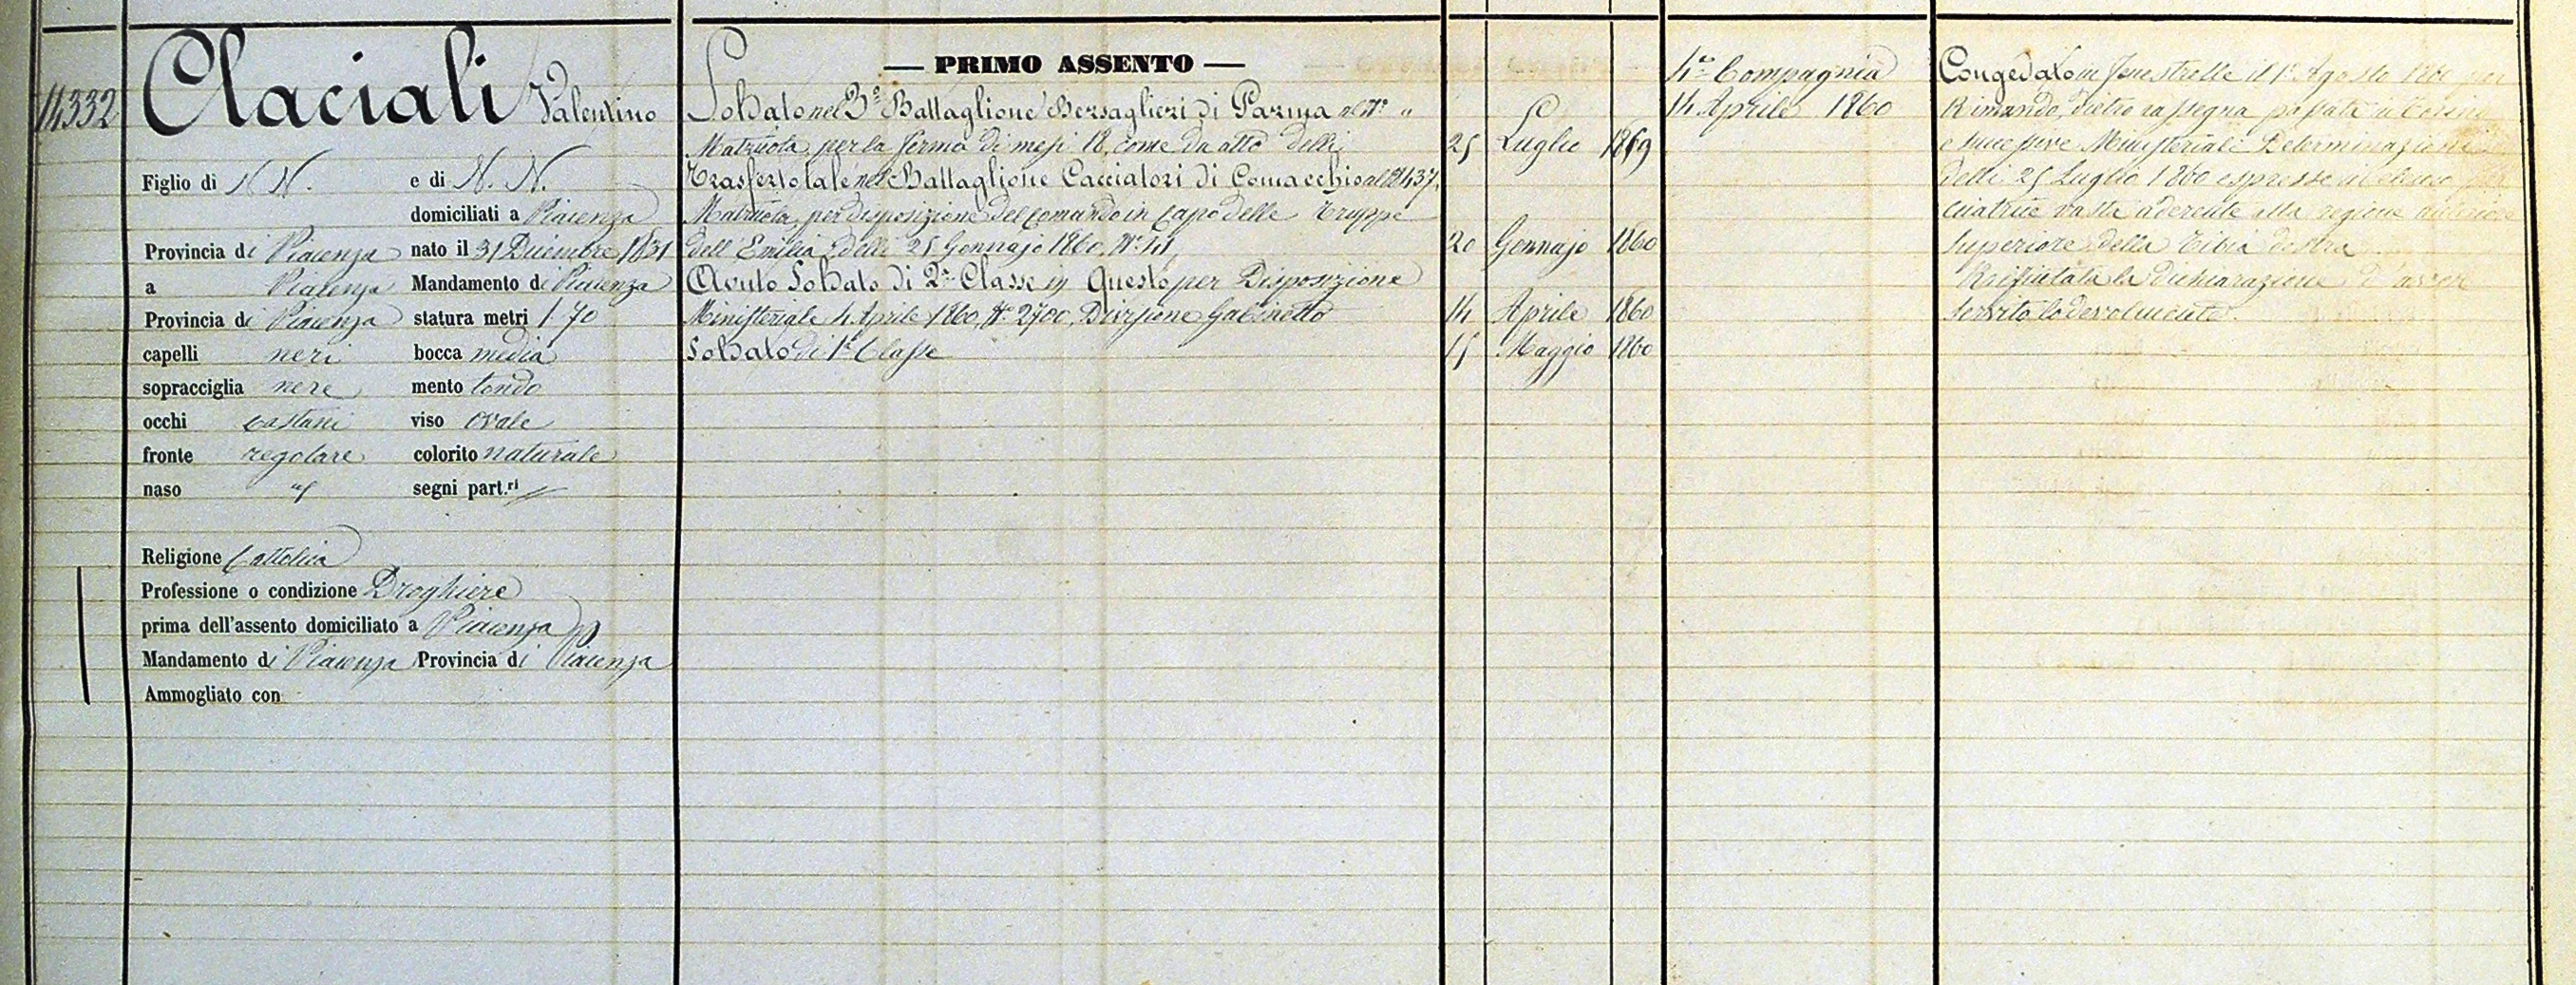 11332
Claciali Valentino
Figlio di N. N. e di N. N.
domiciliati a Piacenza
Provincia di Piacenza nato il 31 Dicembre 1831
a Piacenza Mandamento di Piacenza
Provincia di Piacenza statura metri 1. 70
capelli neri bocca media
sopracciglia nere mento tondo
occhi castani viso ovale
fronte regolare colorito naturale
naso segni part.ri
Religione Cattolica
Professione o condizione Droghiere
prima dell'assento domiciliato a Piacenza
Mandamento di Piacenza Provincia di Piacenza
Ammogliato con
— PRIMO ASSENTO —
Soldato nel 3° Battaglione Bersaglieri di Parma al N° "
Matricola, per la ferma di mesi 18, come da atto delli 25 Luglio 1859
Trasferto tale nel Battaglione Cacciatori di Comacchio al N° 1437,
Matricola, per disposizione del Comando in Capo delle Truppe
dell'Emilia delli 25 Gennajo 1860, N° 41, 20 Gennajo 1860
Avuto Soldato di 2a Classe in Questo per Disposizione
Ministeriale 4 Aprile 1860, N° 2700, Divisione Gabinetto 14 Aprile 1860
Soldato di 1a Classe 15 Maggio 1860
4a Compagnia
14 Aprile 1860
Congedato in Fenestrelle il 1° Agosto 1860 per
Rimando, dietro rassegna passata a
e successive Ministeriali Determinazioni
delli 25 Luglio 1860 espresse in elenco per
cicatrice vasta aderente alla regione anteriore
superiore della Tibia destra
Rifiutata la dichiarazione d'aver
servito lodevolmente.